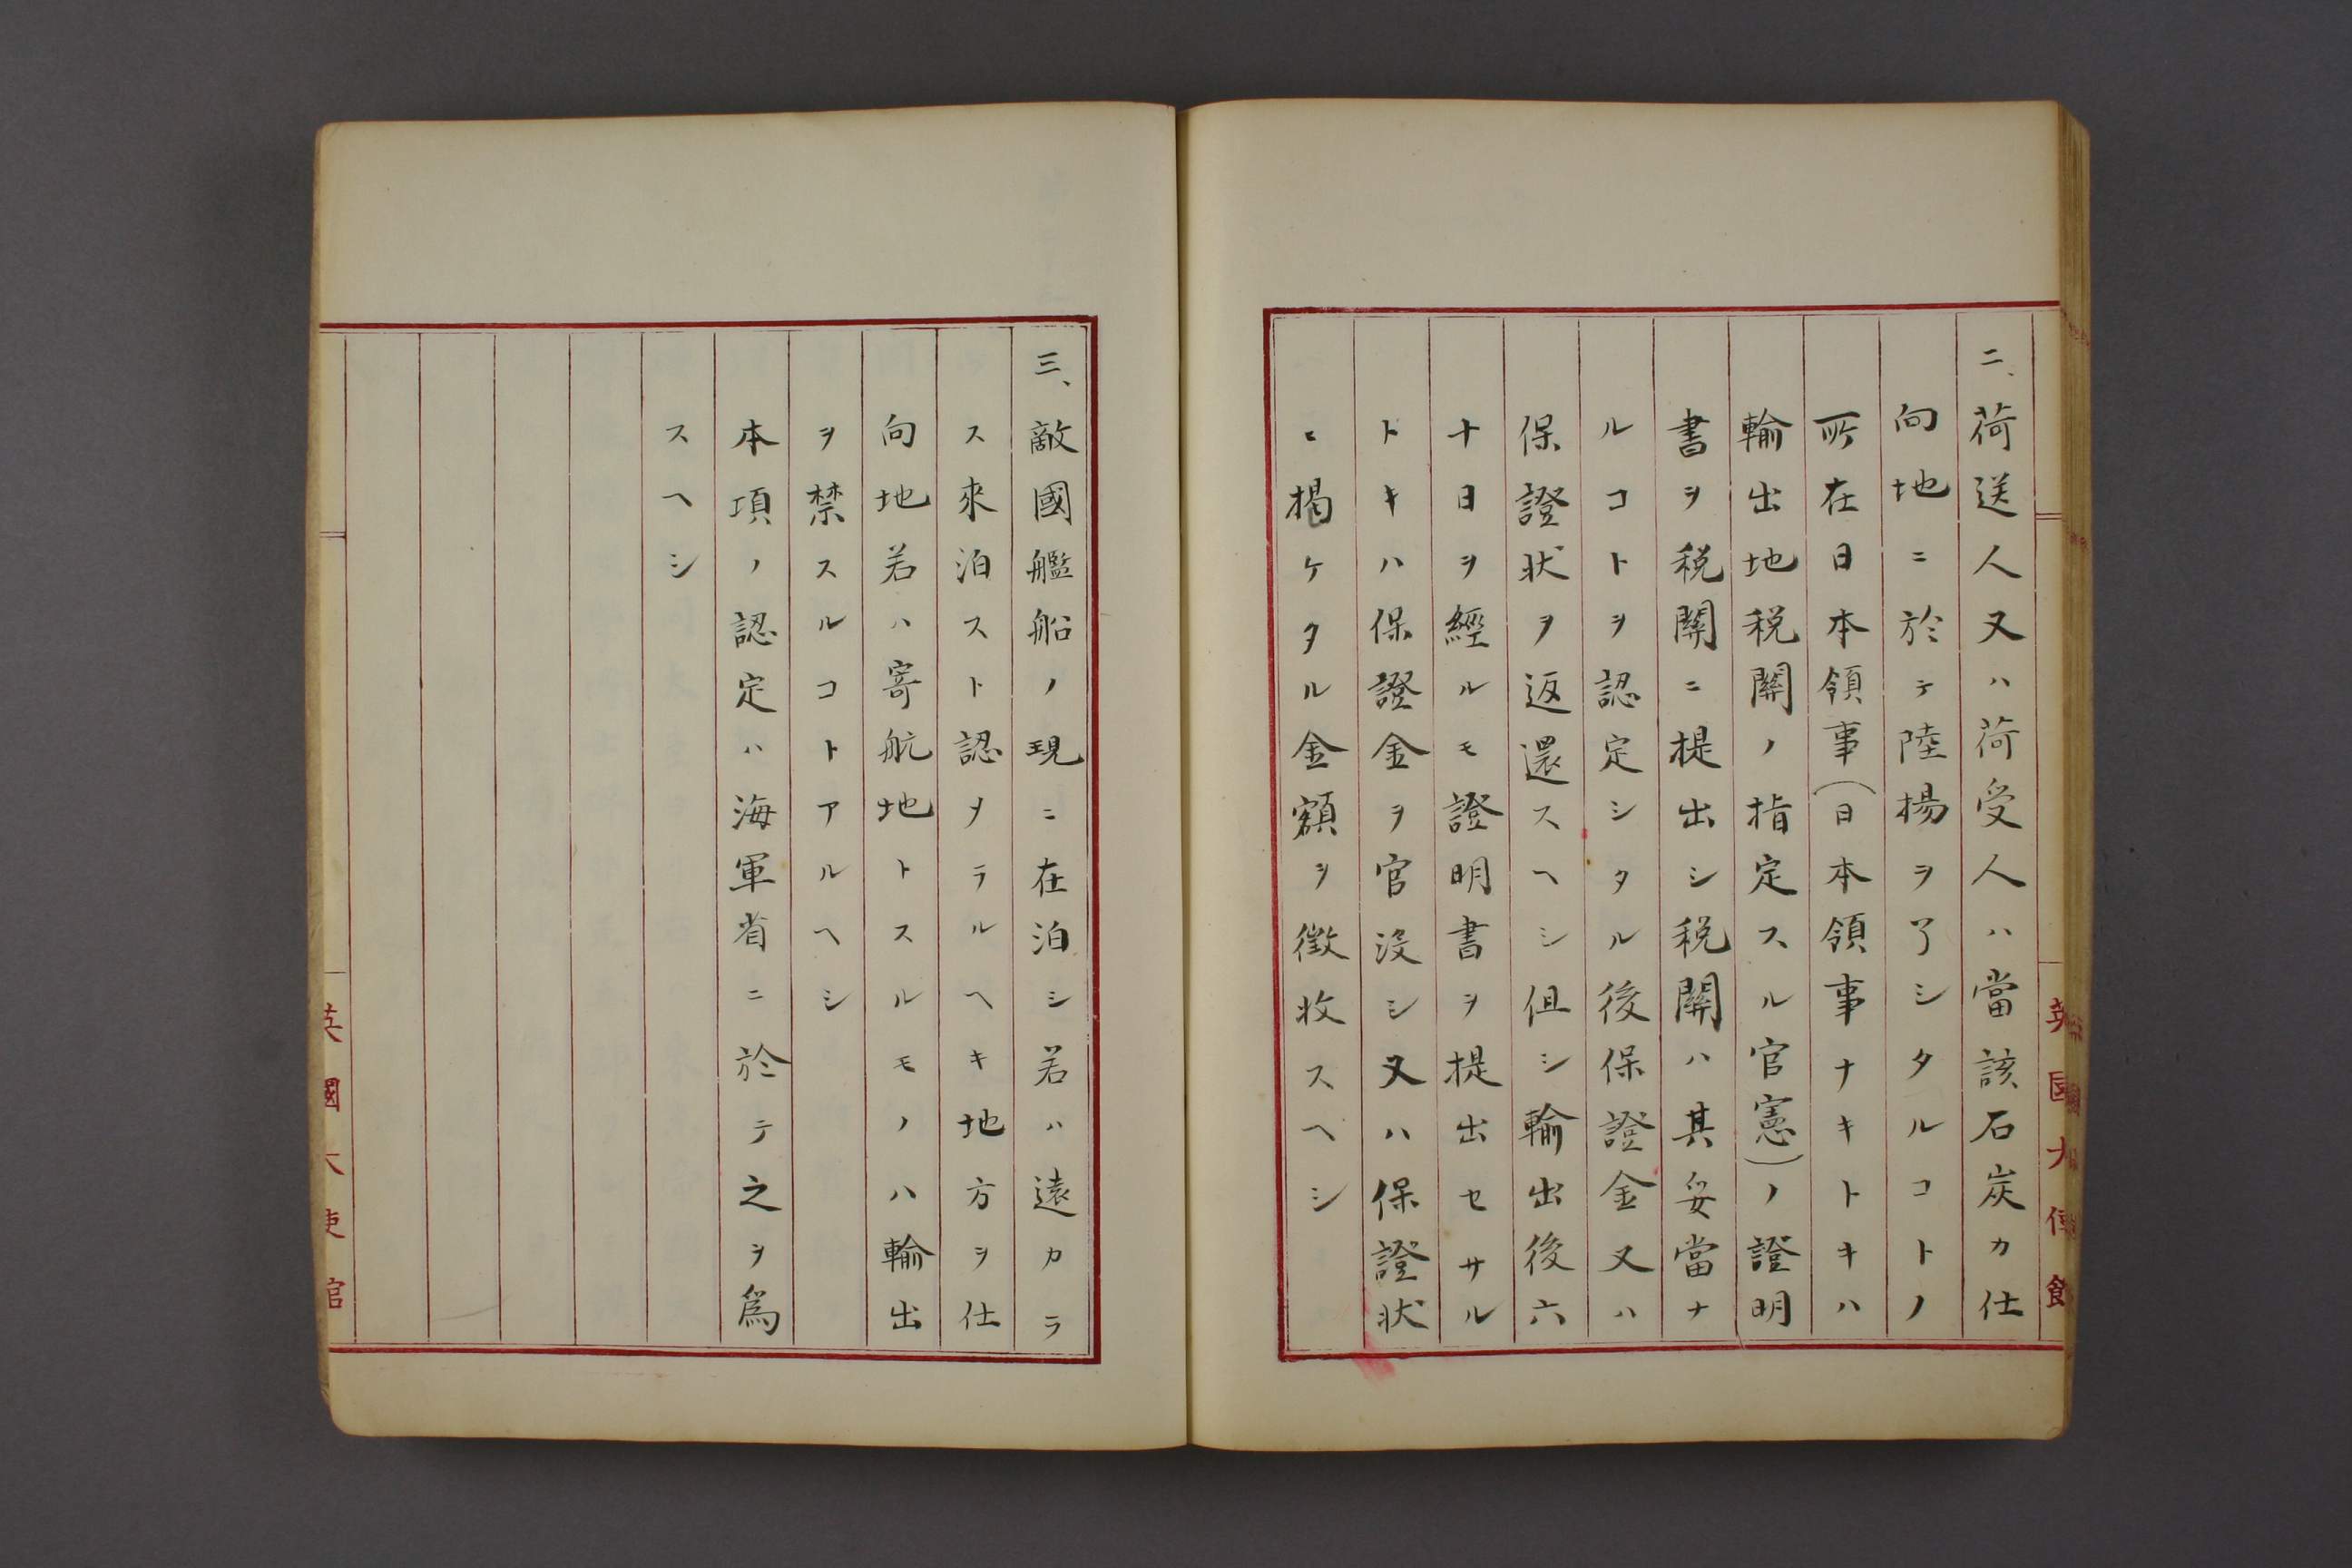 二、荷送人又ハ荷受人ハ當該石炭カ仕
向地ニ於テ陸揚ヲ了シタルコトノ
所在日本領事(日本領事ナキトキハ
輸出地税關ノ指定スル官憲)ノ證明
書ヲ税關ニ提出シ税關ハ其妥當ナ
ルコトヲ認定シタル後保證金又ハ
保證状ヲ返還スヘシ但シ輸出後六
十日ヲ經ルモ證明書ヲ提出セサル
トキハ保證金ヲ官沒シ又ハ保證状
ニ掲ケタル金額ヲ徴收スヘシ
三、敵國艦船ノ現ニ在泊シ若ハ遠カラ
ス來泊スト認メラルヘキ地方ヲ仕
向地若ハ寄航地トスルモノハ輸出
ヲ禁スルコトアルヘシ
本項ノ認定ハ海軍省ニ於テ之ヲ爲
スヘシ
英國大使館